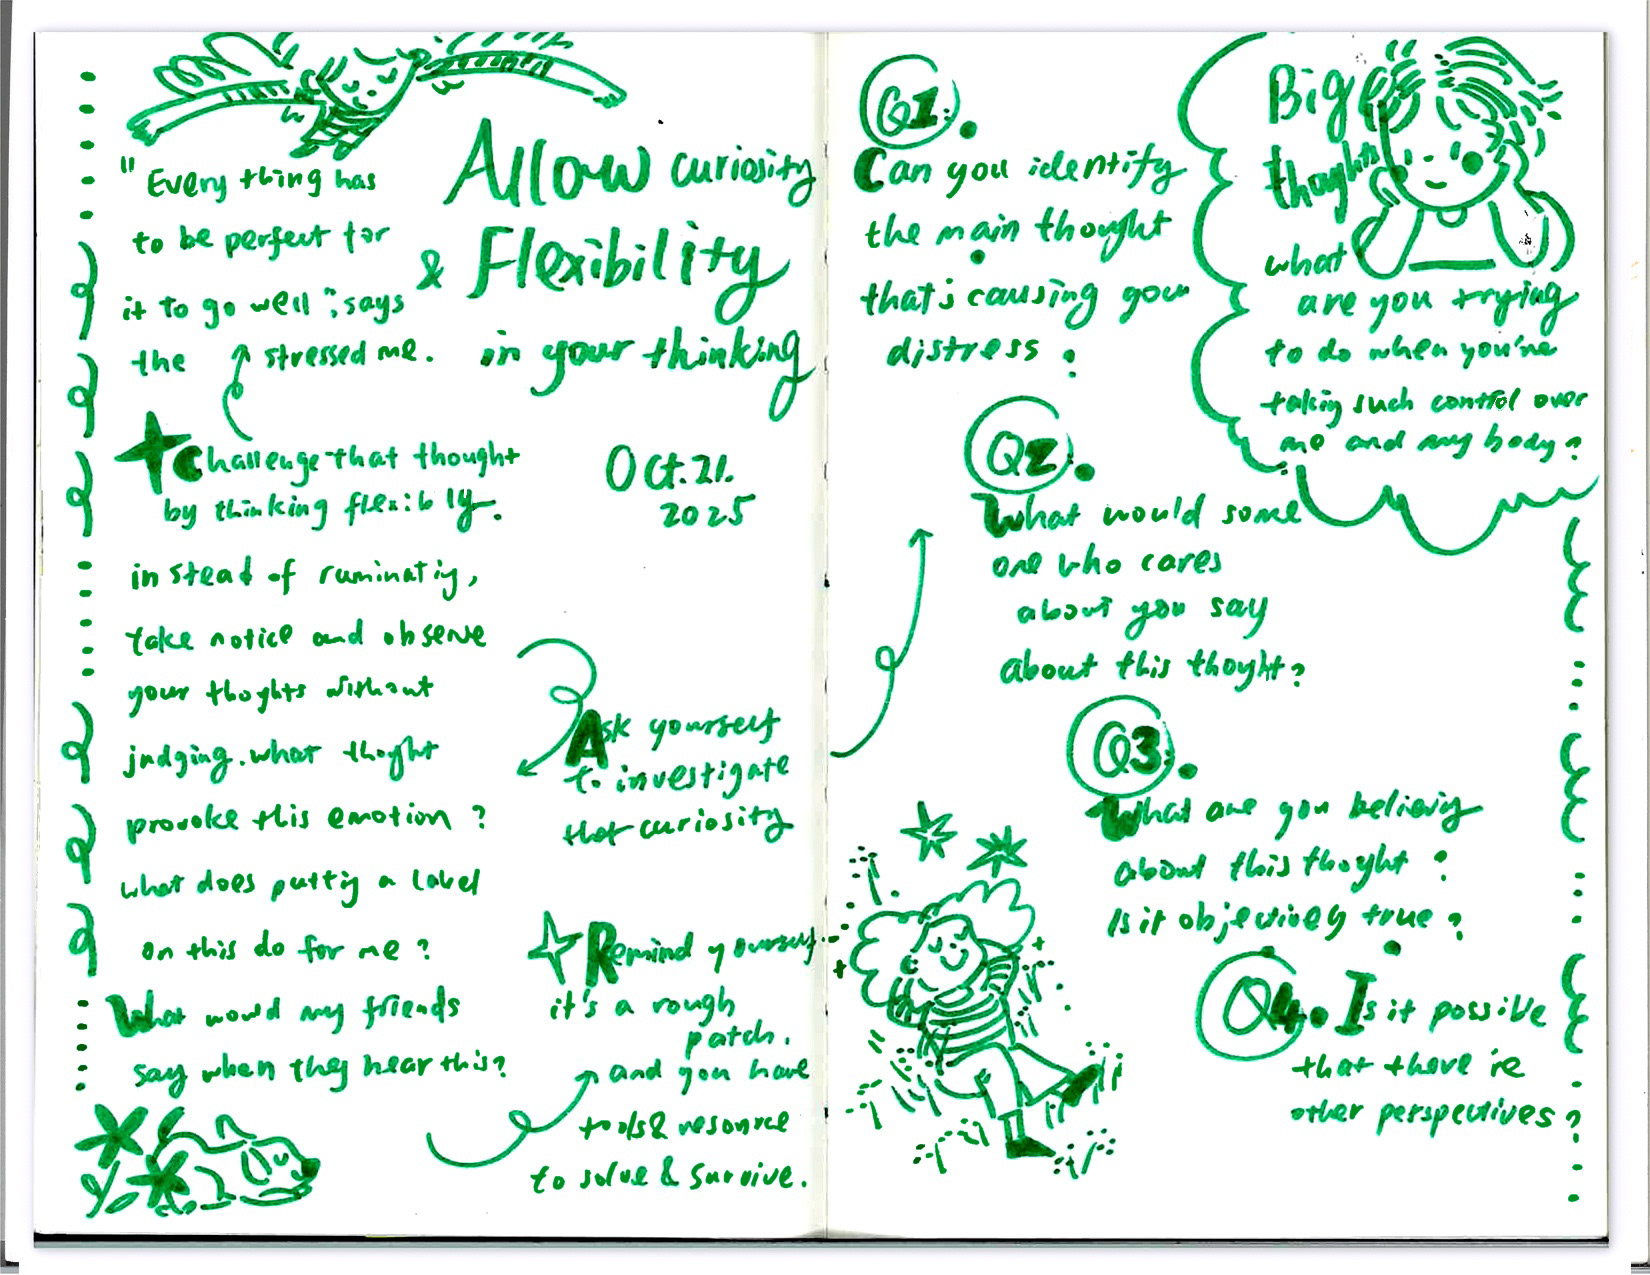 "Every thing has
to be perfect for
it to go well", says
the stressed me.
Allow curiosity
& Flexibility
in your thinking
Oct. 21.
2025
Challenge that thought
by thinking flexibly.
in stead of ruminatig,
take notice and observe
your thoghts without
judging. what thoght
provoke this emotion?
what does puttig a label
on this do for me?
What would my friends
say when they hear this?
Ask yourself
to investigate
that curiosity
Remind yourself
it's a rough
patch.
and you have
tools & resource
to solve & survive.
Q1.
Can you identify
the main thought
that's causing your
distress?
Q2.
What would some
one who cares
about you say
about this thoyht?
Q3.
What are you believig
about this thoyht?
Is it objectively true?
Q4. Is it possible
that there're
other perspectives?
Big
thoughts
what
are you trying
to do when you're
taking such control over
me and my body?